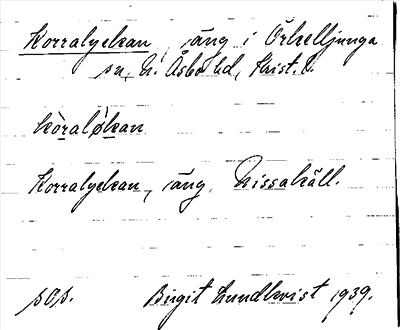 Korralyckan, äng i Örkelljunga
sn, N. Åsbo hd, Krist. l.
kòraløkan
Korralyckan, äng Kissakäll.
sOs. Birgit Lundkvist 1939.